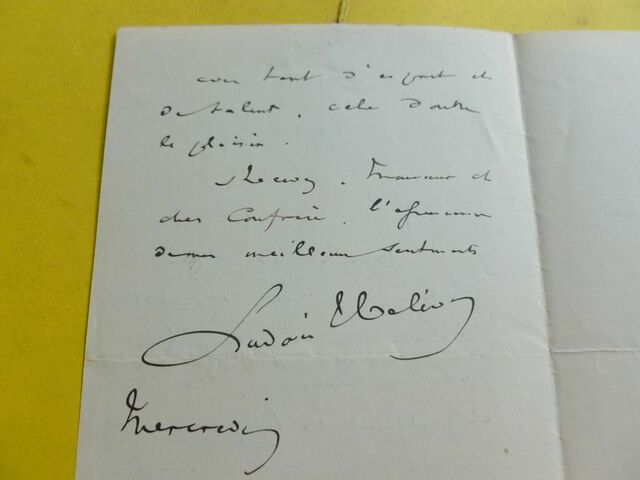 avec tant d'esprit et
de talent. cela double
le plaisir.
Recevez, Monsieur et
cher Confrère, l'expression
de mes meilleurs sentiments
Ludovic Halévy
Mercredi